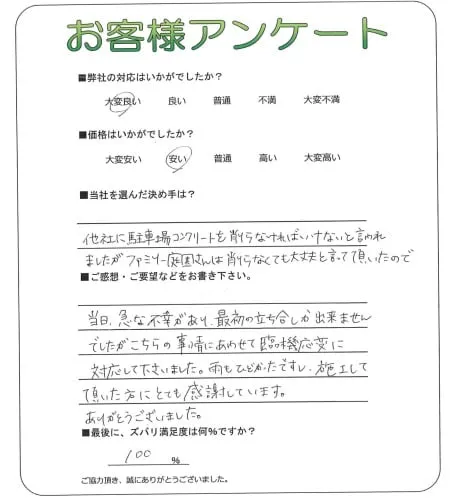 お客様アンケート
■弊社の対応はいかがでしたか？
大変良い 良い 普通 不満 大変不満
■価格はいかがでしたか？
大変安い 安い 普通 高い 大変高い
■当社を選んだ決め手は？
他社に駐車場コンクリートを削らなければいけないと言われ
ましたがファミリー庭園さんは削らなくても大丈夫と言って頂いたので
■ご感想・ご要望などをお書き下さい。
当日、急な不幸があり、最初の立ち合いしか出来ません
でしたがこちらの事情にあわせて臨機応変に
対応して下さいました。雨もひどかったですし、施工して
頂いた方にとても感謝しています。
ありがとうございました。
■最後に、ズバリ満足度は何%ですか？
100 %
ご協力頂き、誠にありがとうございました。